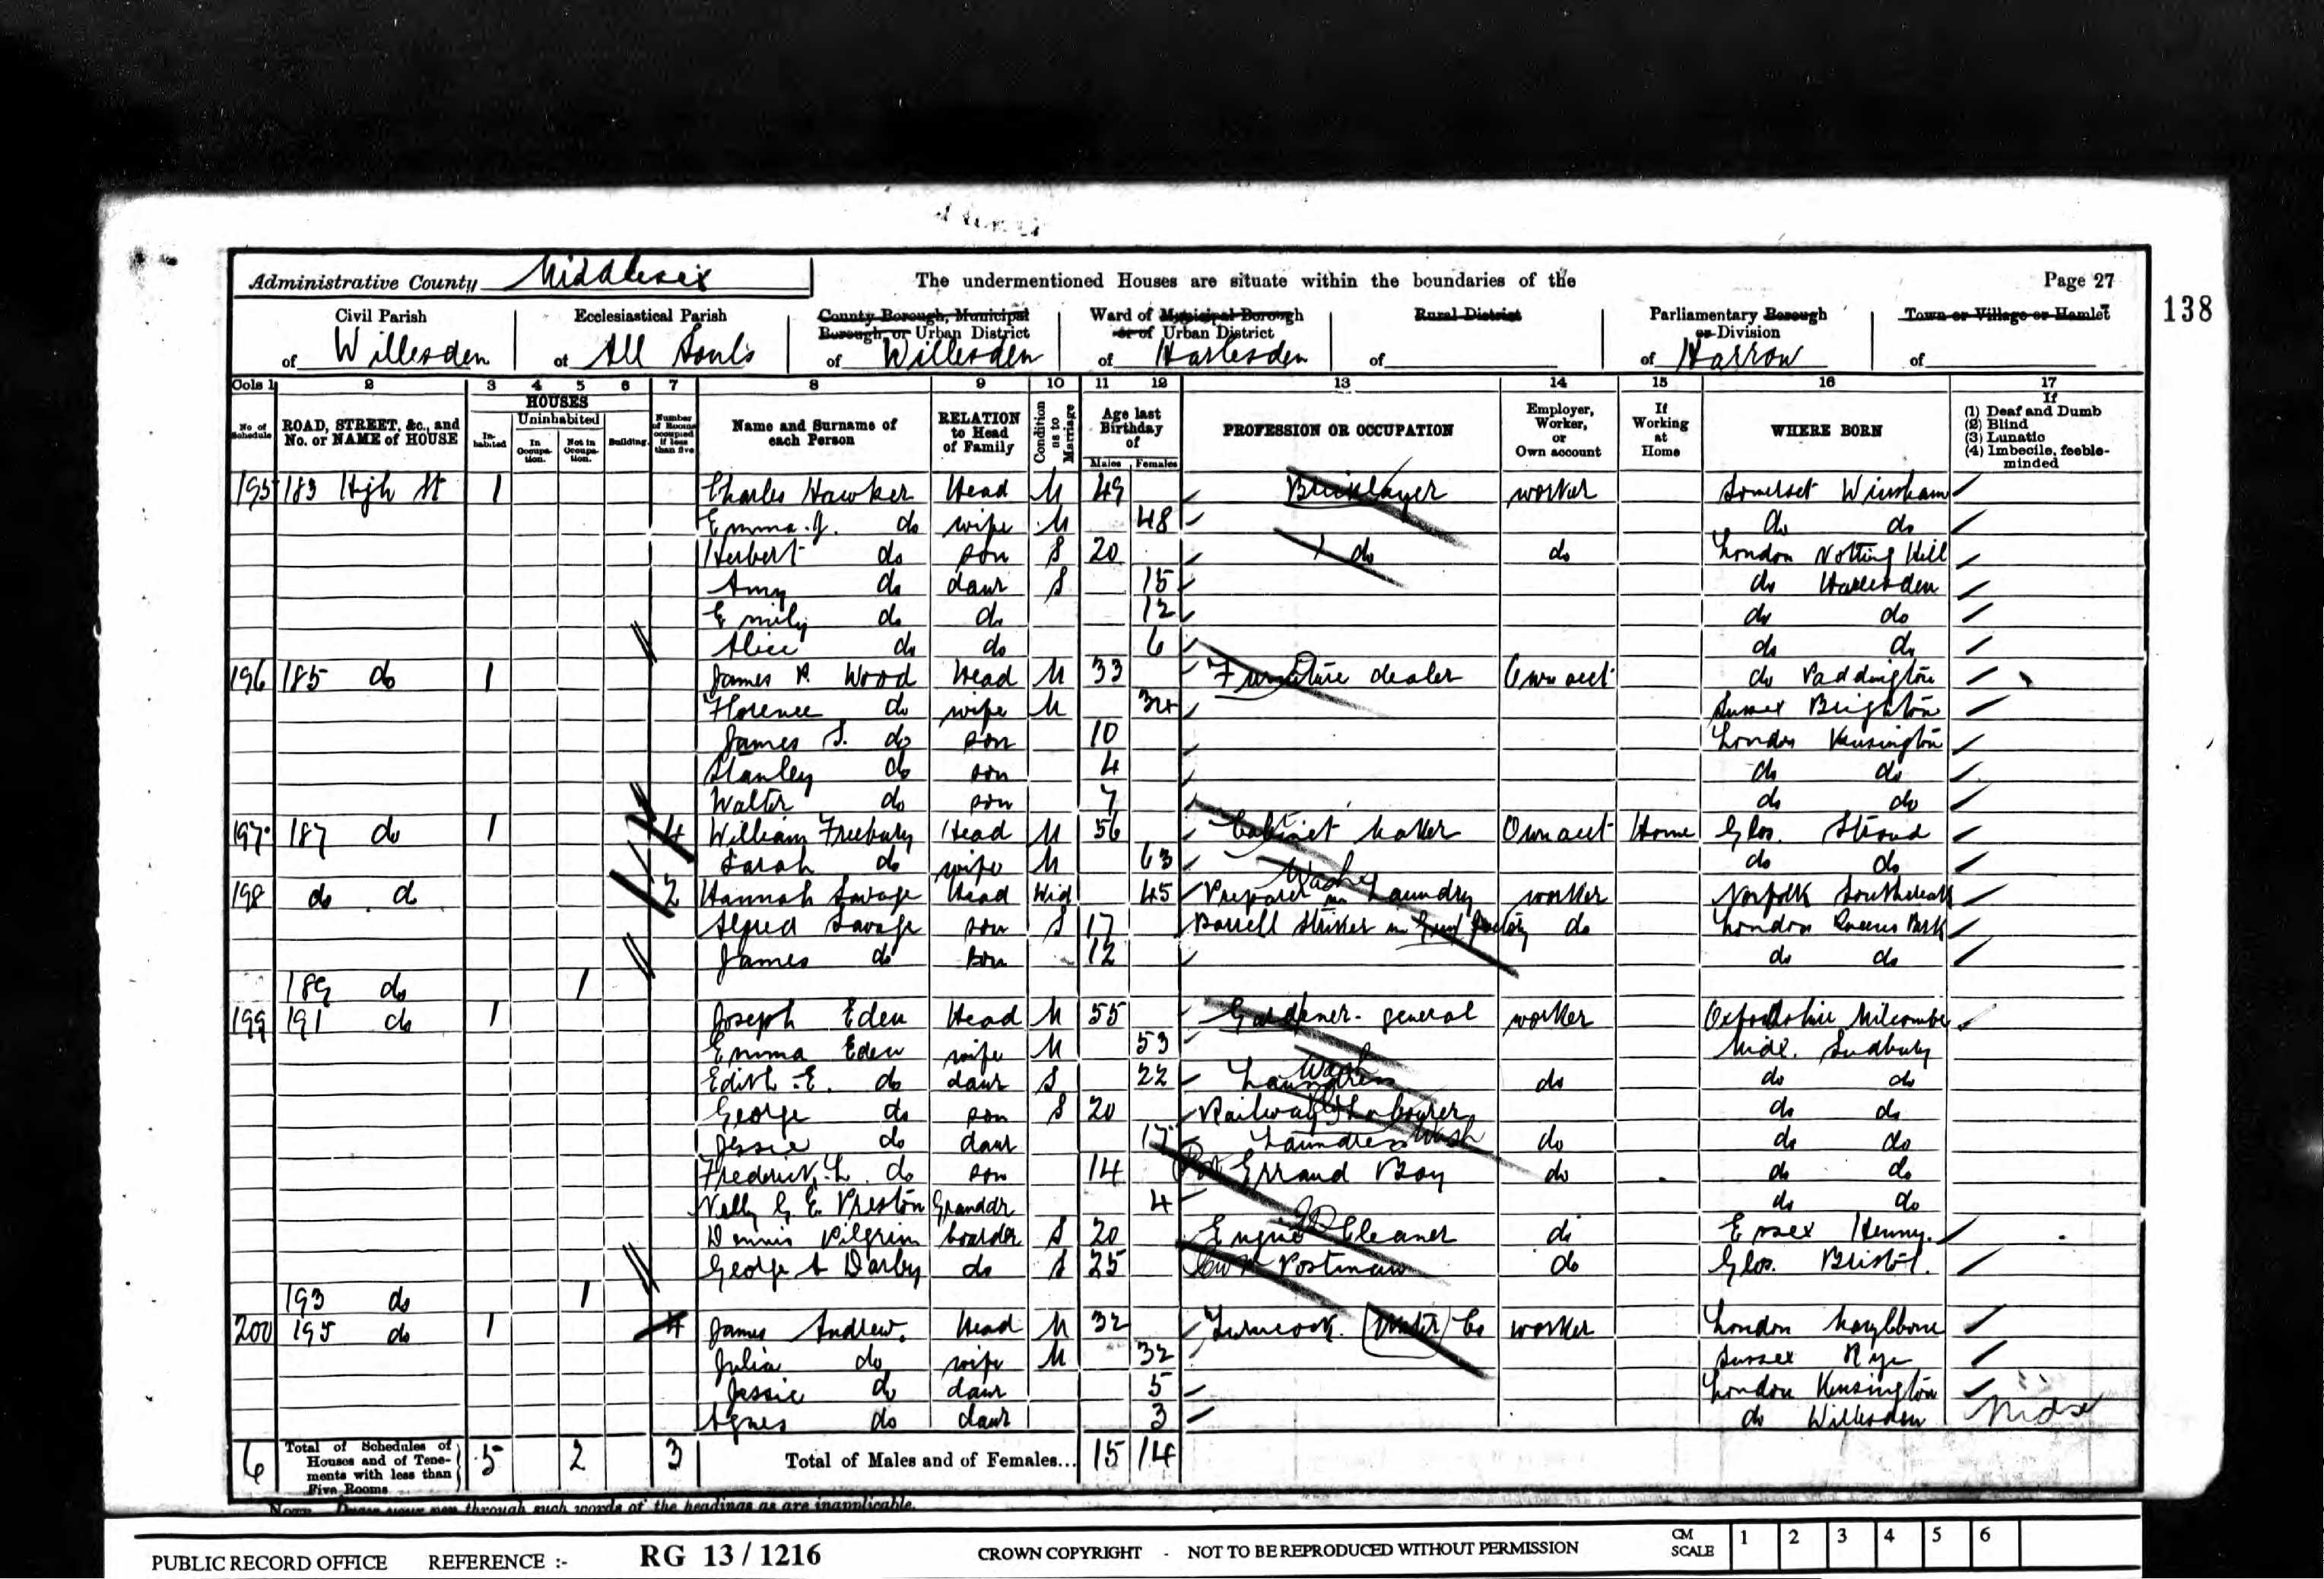 Administrative County Middlesex The undermentioned Houses are situate within the boundaries of the Page 27
138
Civil Parish of Willesden
Ecclesiastical Parish of All Souls
County Borough, Municipal Borough, or Urban District of Willesden
Ward of Municipal Borough or of Urban District of Harlesden
Rural District of
Parliamentary Borough or Division of Harrow
Town or Village or Hamlet of
Cols 1 2 3 4 5 6 7 8 9 10 11 12 13 14 15 16 17
No. of Schedule
ROAD, STREET, &c., and No. or NAME of HOUSE
HOUSES
Inhabited
Uninhabited
In Occupation.
Not in Occupation.
Building.
Number of Rooms occupied if less than five
Name and Surname of each Person
RELATION to Head of Family
Condition as to Marriage
Age last Birthday of
Males Females
PROFESSION OR OCCUPATION
Employer, Worker, or Own account
If Working at Home
WHERE BORN
If
(1) Deaf and Dumb
(2) Blind
(3) Lunatic
(4) Imbecile, feeble-minded
195 183 High St 1 Charles Hawker Head M 49 Bricklayer worker Somerset Winsham
Emma J. do wife M 48 do do
Herbert do son S 20 do do London Notting Hill
Amy do daur S 15 do Harlesden
Emily do do 12 do do
Alice do do 6 do do
196 185 do 1 James P. Wood Head M 33 Furniture dealer Own acct do Paddington
Florence do wife M 34 Sussex Brighton
James S. do son 10 London Kensington
Stanley do son 4 do do
Walter do son 7 do do
197 187 do 1 4 William Freebury Head M 56 Cabinet Maker Own acct Home Glos. Stroud
Sarah do wife M 63 do do
198 do do 2 Hannah Savage Head Wid 45 Preparer in Wash Laundry worker Norfolk
Alfred Savage son S 17 Barrell Striker in factory do London Queens Park
James do son 12 do do
189 do 1
199 191 do 1 Joseph Eden Head M 55 Gardener - general worker Oxfordshire Milcombe
Emma Eden wife M 53 Midx. Sudbury
Edith E. do daur S 22 Laundress Wash do do do
George do son S 20 Railway Labourer do do
Jessie do daur 17 Laundress Wash do do do
Frederick L. do son 14 Errand Boy do do do
Nelly G E Preston Granddr 4 do do
Dennis Pilgrim boarder S 20 Engine Cleaner do Essex Henny.
George A Darby do S 25 Postman do Glos. Bristol.
193 do 1
200 195 do 1 4 James Andrew. Head M 32 Turncock. Water Co worker London Marylebone
Julia do wife M 32 Sussex Rye
Jessie do daur 5 London Kensington
Agnes do daur 3 do Willesden Midsx
6 Total of Schedules of Houses and of Tenements with less than Five Rooms 5 2 3 Total of Males and of Females... 15 14
NOTE.—Draw your pen through such words of the headings as are inapplicable.
PUBLIC RECORD OFFICE REFERENCE :- RG 13 / 1216 CROWN COPYRIGHT - NOT TO BE REPRODUCED WITHOUT PERMISSION CM SCALE 1 2 3 4 5 6